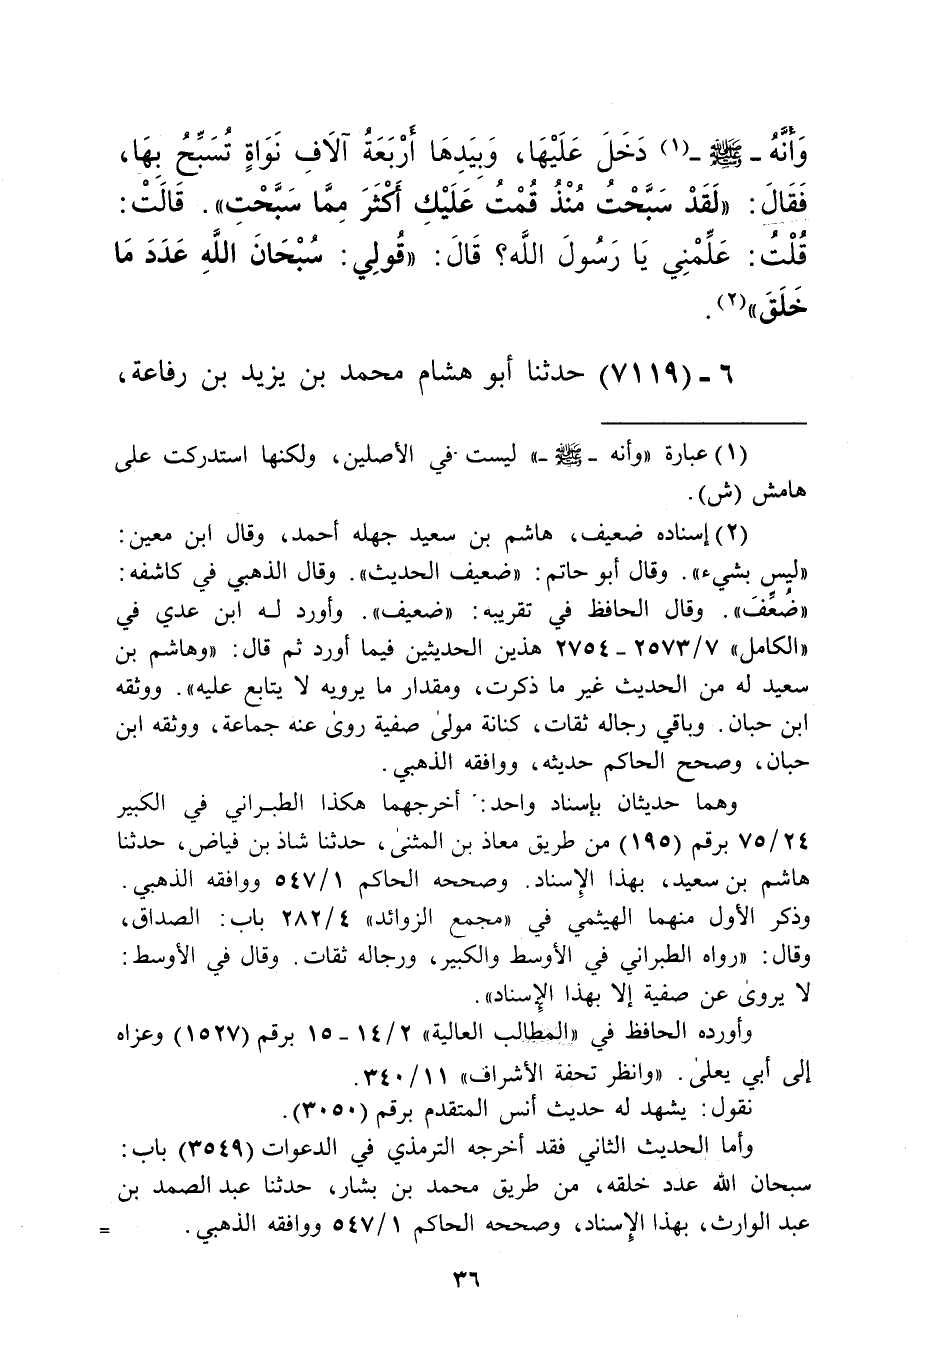 وَأَنَّهُ ـ ﷺ ـ(١) دَخَلَ عَلَيْهَا، وَبَيَدِهَا أَرْبَعَةُ آلَافِ نَوَاةٍ تُسَبِّحُ بِهَا،
فَقَالَ: «لَقَدْ سَبَّحْتُ مُنْذُ قُمْتُ عَلَيْكِ أَكْثَرَ مِمَّا سَبَّحْتِ». قَالَتْ:
قُلْتُ: عَلِّمْنِي يَا رَسُولَ اللَّه؟ قَالَ: «قُولِي: سُبْحَانَ اللَّهِ عَدَدَ مَا
خَلَقَ»(٢).
٦ ـ (٧١١٩) حدثنا أبو هشام محمد بن يزيد بن رفاعة،
(١) عبارة «وأنه ـ ﷺ ـ» ليست في الأصلين، ولكنها استدركت على
هامش (ش).
(٢) إسناده ضعيف، هاشم بن سعيد جهله أحمد، وقال ابن معين:
«ليس بشيء». وقال أبو حاتم: «ضعيف الحديث». وقال الذهبي في كاشفه:
«ضُعِّفَ». وقال الحافظ في تقريبه: «ضعيف». وأورد له ابن عدي في
«الكامل» ٢٥٧٣/٧ ـ ٢٧٥٤ هذين الحديثين فيما أورد ثم قال: «وهاشم بن
سعيد له من الحديث غير ما ذكرت، ومقدار ما يرويه لا يتابع عليه». ووثقه
ابن حبان. وباقي رجاله ثقات، كنانة مولىٰ صفية روىٰ عنه جماعة، ووثقه ابن
حبان، وصحح الحاكم حديثه، ووافقه الذهبي.
وهما حديثان بإسناد واحد: أخرجهما هكذا الطبراني في الكبير
٧٥/٢٤ برقم (١٩٥) من طريق معاذ بن المثنىٰ، حدثنا شاذ بن فياض، حدثنا
هاشم بن سعيد، بهذا الإِسناد. وصححه الحاكم ٥٤٧/١ ووافقه الذهبي.
وذكر الأول منهما الهيثمي في «مجمع الزوائد» ٢٨٢/٤ باب: الصداق،
وقال: «رواه الطبراني في الأوسط والكبير، ورجاله ثقات. وقال في الأوسط:
لا يروىٰ عن صفية إلا بهذا الإِسناد».
وأورده الحافظ في «المطالب العالية» ١٤/٢ ـ ١٥ برقم (١٥٢٧) وعزاه
إلى أبي يعلىٰ. «وانظر تحفة الأشراف» ٣٤٠/١١.
نقول: يشهد له حديث أنس المتقدم برقم (٣٠٥٠).
وأما الحديث الثاني فقد أخرجه الترمذي في الدعوات (٣٥٤٩) باب:
سبحان الله عدد خلقه، من طريق محمد بن بشار، حدثنا عبد الصمد بن
عبد الوارث، بهذا الإِسناد، وصححه الحاكم ٥٤٧/١ ووافقه الذهبي. =
٣٦